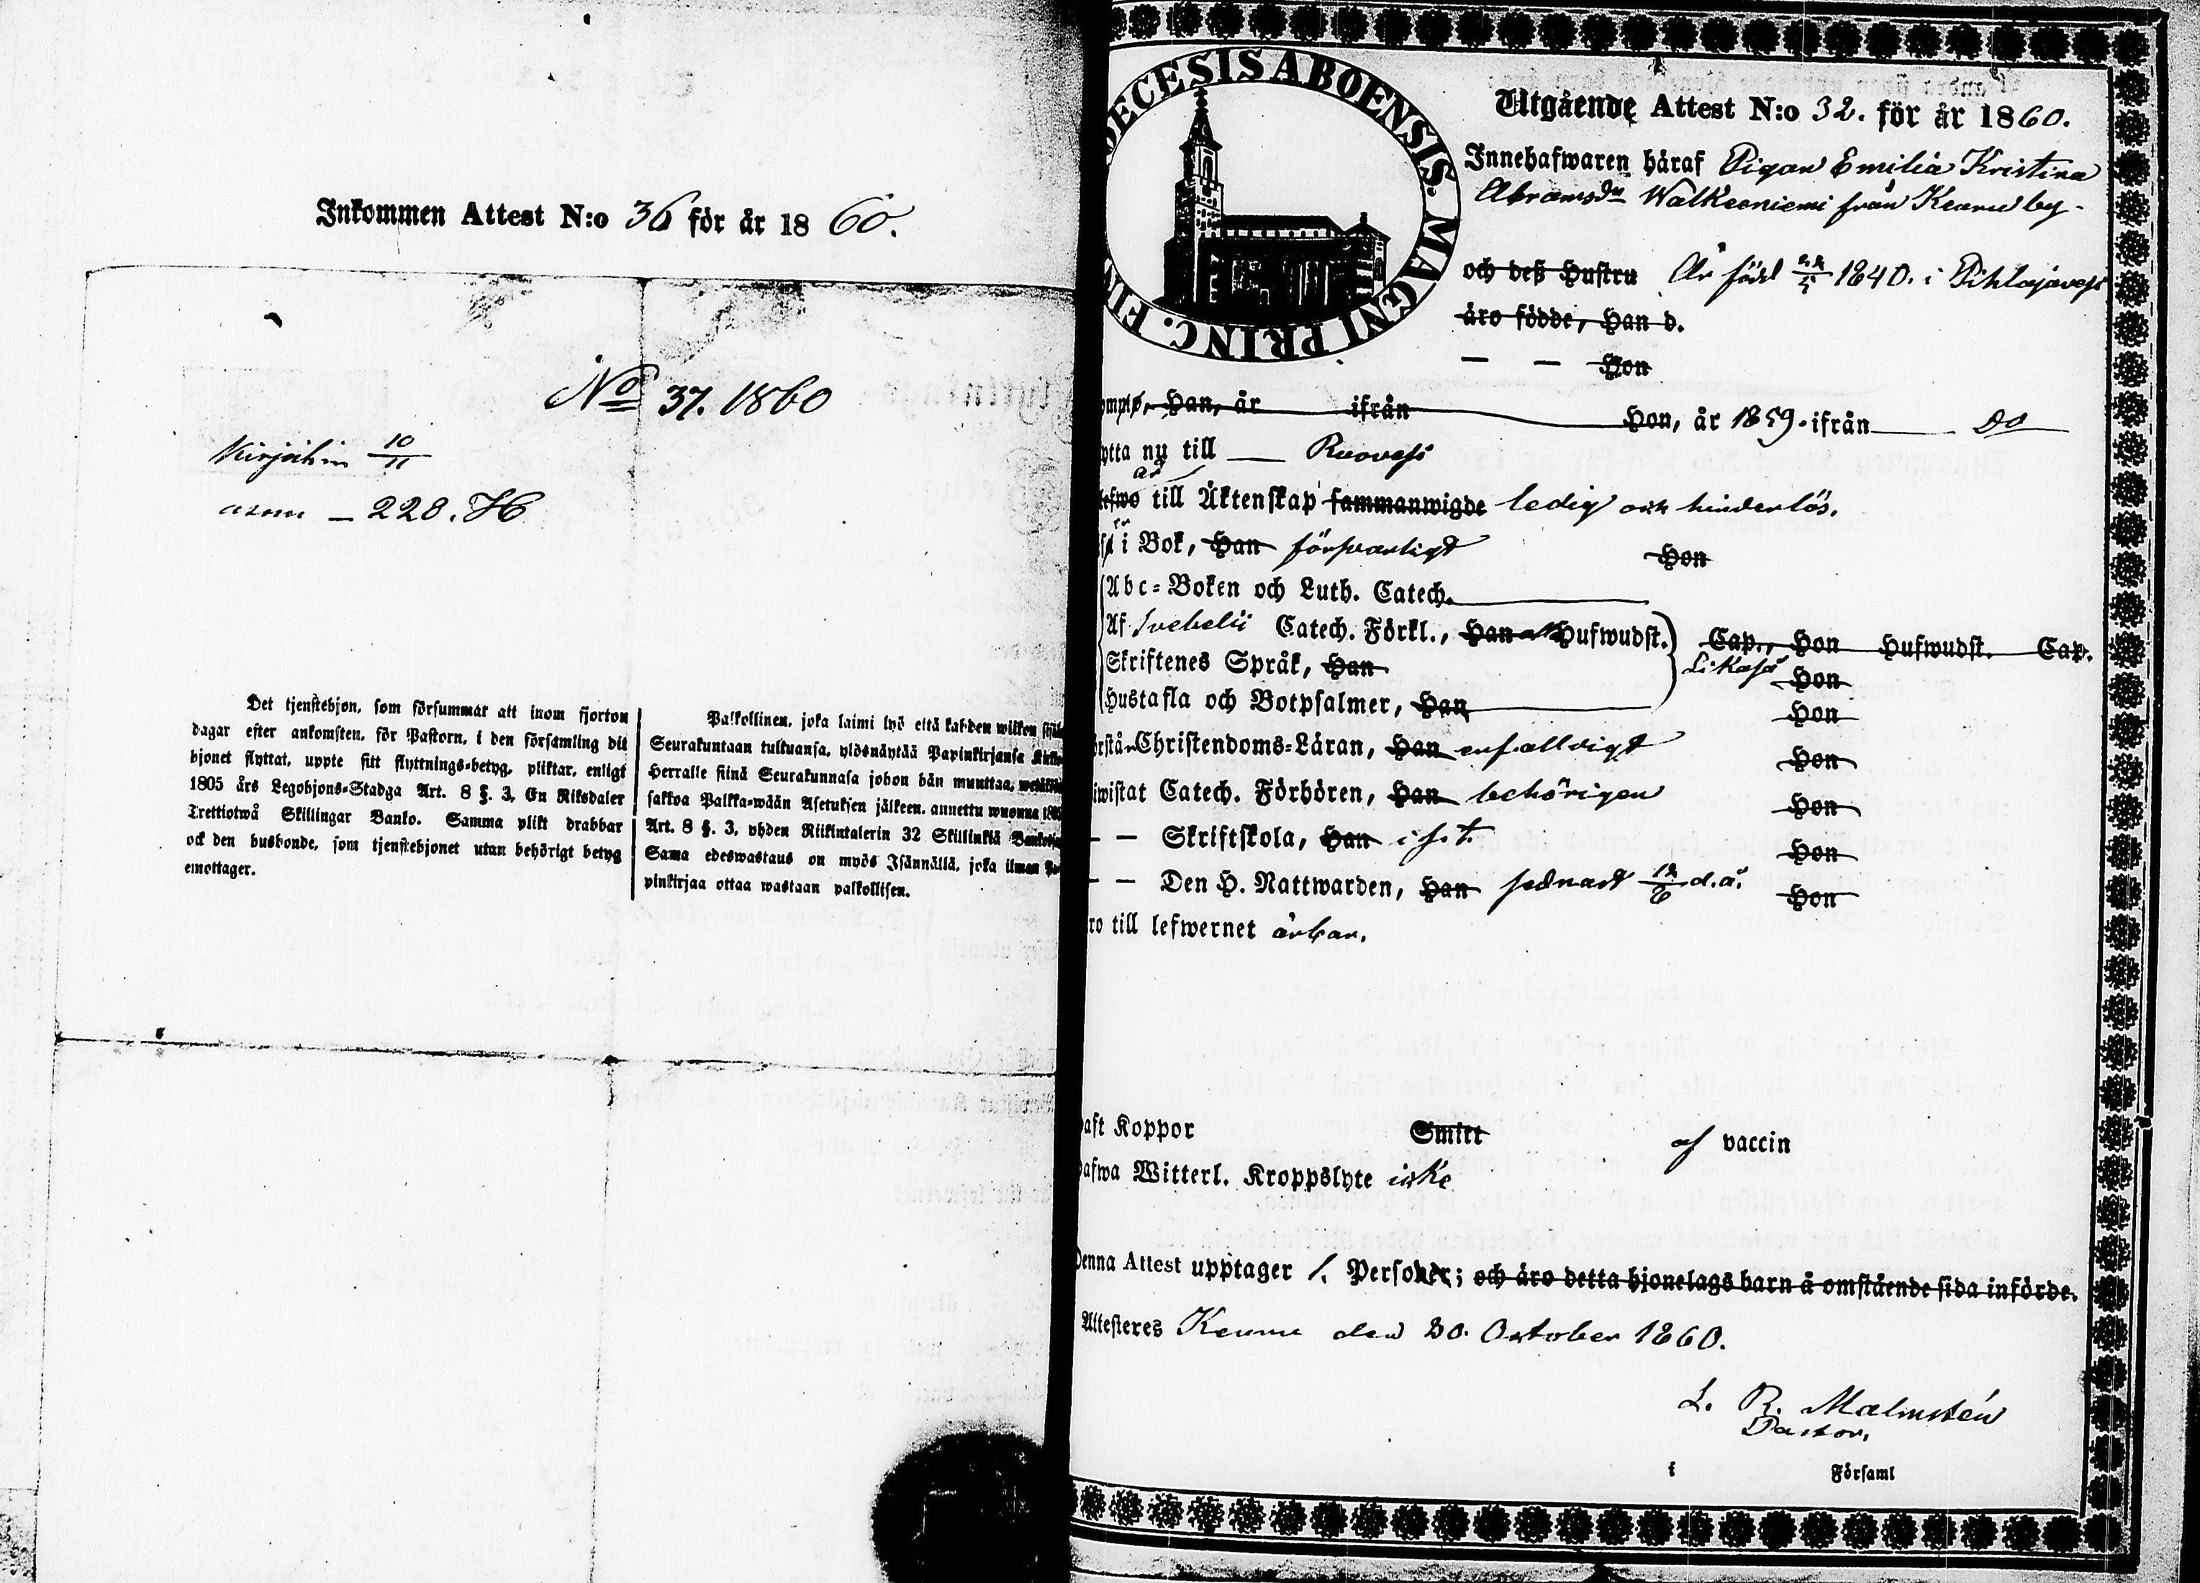 Inkommen Attest N:o 36 för år 1860.
No 37. 1860
Kirjoihin 10/11
228. H
Det tjenstehjon, som försummar att inom fjorton
dagar efter ankomsten, för Pastorn, i den församling dit
hjonet flyttat, uppte sitt flyttnings-betyg, pliktar, enligt
1805 års Legohjons-Stadga Art. 8 §. 3, En Riksdaler
Trettiotwå Skillingar Banko. Samma plikt drabbar
ock den husbonde, som tjenstehjonet utan behörigt betyg
emottager.
Palkollinen, joka laimi lyö että kahden wiikon
Seurakuntaan tultuansa, ylösnäyttää Papinkirjansa
Herralle siinä Seurakunnasa johon hän muuttaa,
sakkoa Palkka-wään Asetuksen jälkeen, annettu wuonna
Art. 8 §. 3, yhden Riikintalerin 32 Skillinkiä
Sama edeswastaus on myös Isännällä, joka ilman
pinkirjaa ottaa wastaan palkollisen.
DECESIS ABOENSIS. MAGNI PRINC. FIN
Utgående Attest N:o 32. för år 1860.
Innehafwaren häraf Pigan Emilia Kristina
Abramsdr Walkeeniemi från Keuru by.
och deß Hustru Är född 1840. i Pihlajavesi
äro födde, Han d.
— — Hon
Han, år ifrån Hon, år 1859. ifrån Do
nu till Ruovesi
är till Äktenskap sammanwigde ledig och hinderlös.
i Bok, Han försvarligt Hon
Abc-Boken och Luth. Catech.
Af Svebelii Catech. Förkl., Han Hufwudst. Cap., Hon Hufwudst. Cap.
Skriftenes Språk, Han Likaså Hon
Hustafla och Botpsalmer, Han Hon
Christendoms-Läran, Han enfalldigt Hon
Catech. Förhören, Han behörigen Hon
— — Skriftskola, Han i s. t. Hon
— — Den H. Nattwarden, Han sednast d. å. Hon
till lefwernet ärbar.
Koppor Smitt af vaccin
Witterl. Kroppslyte icke
Denna Attest upptager 1. Personer; och äro detta hjonelags barn å omstående sida införde.
Attesteres Keuru den 30. October 1860.
L. R. Malmstén
Pastor.
i Församl